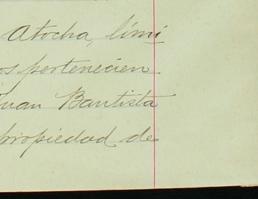 Atocha, limi
os pertenecien
Juan Bautista
propiedad de